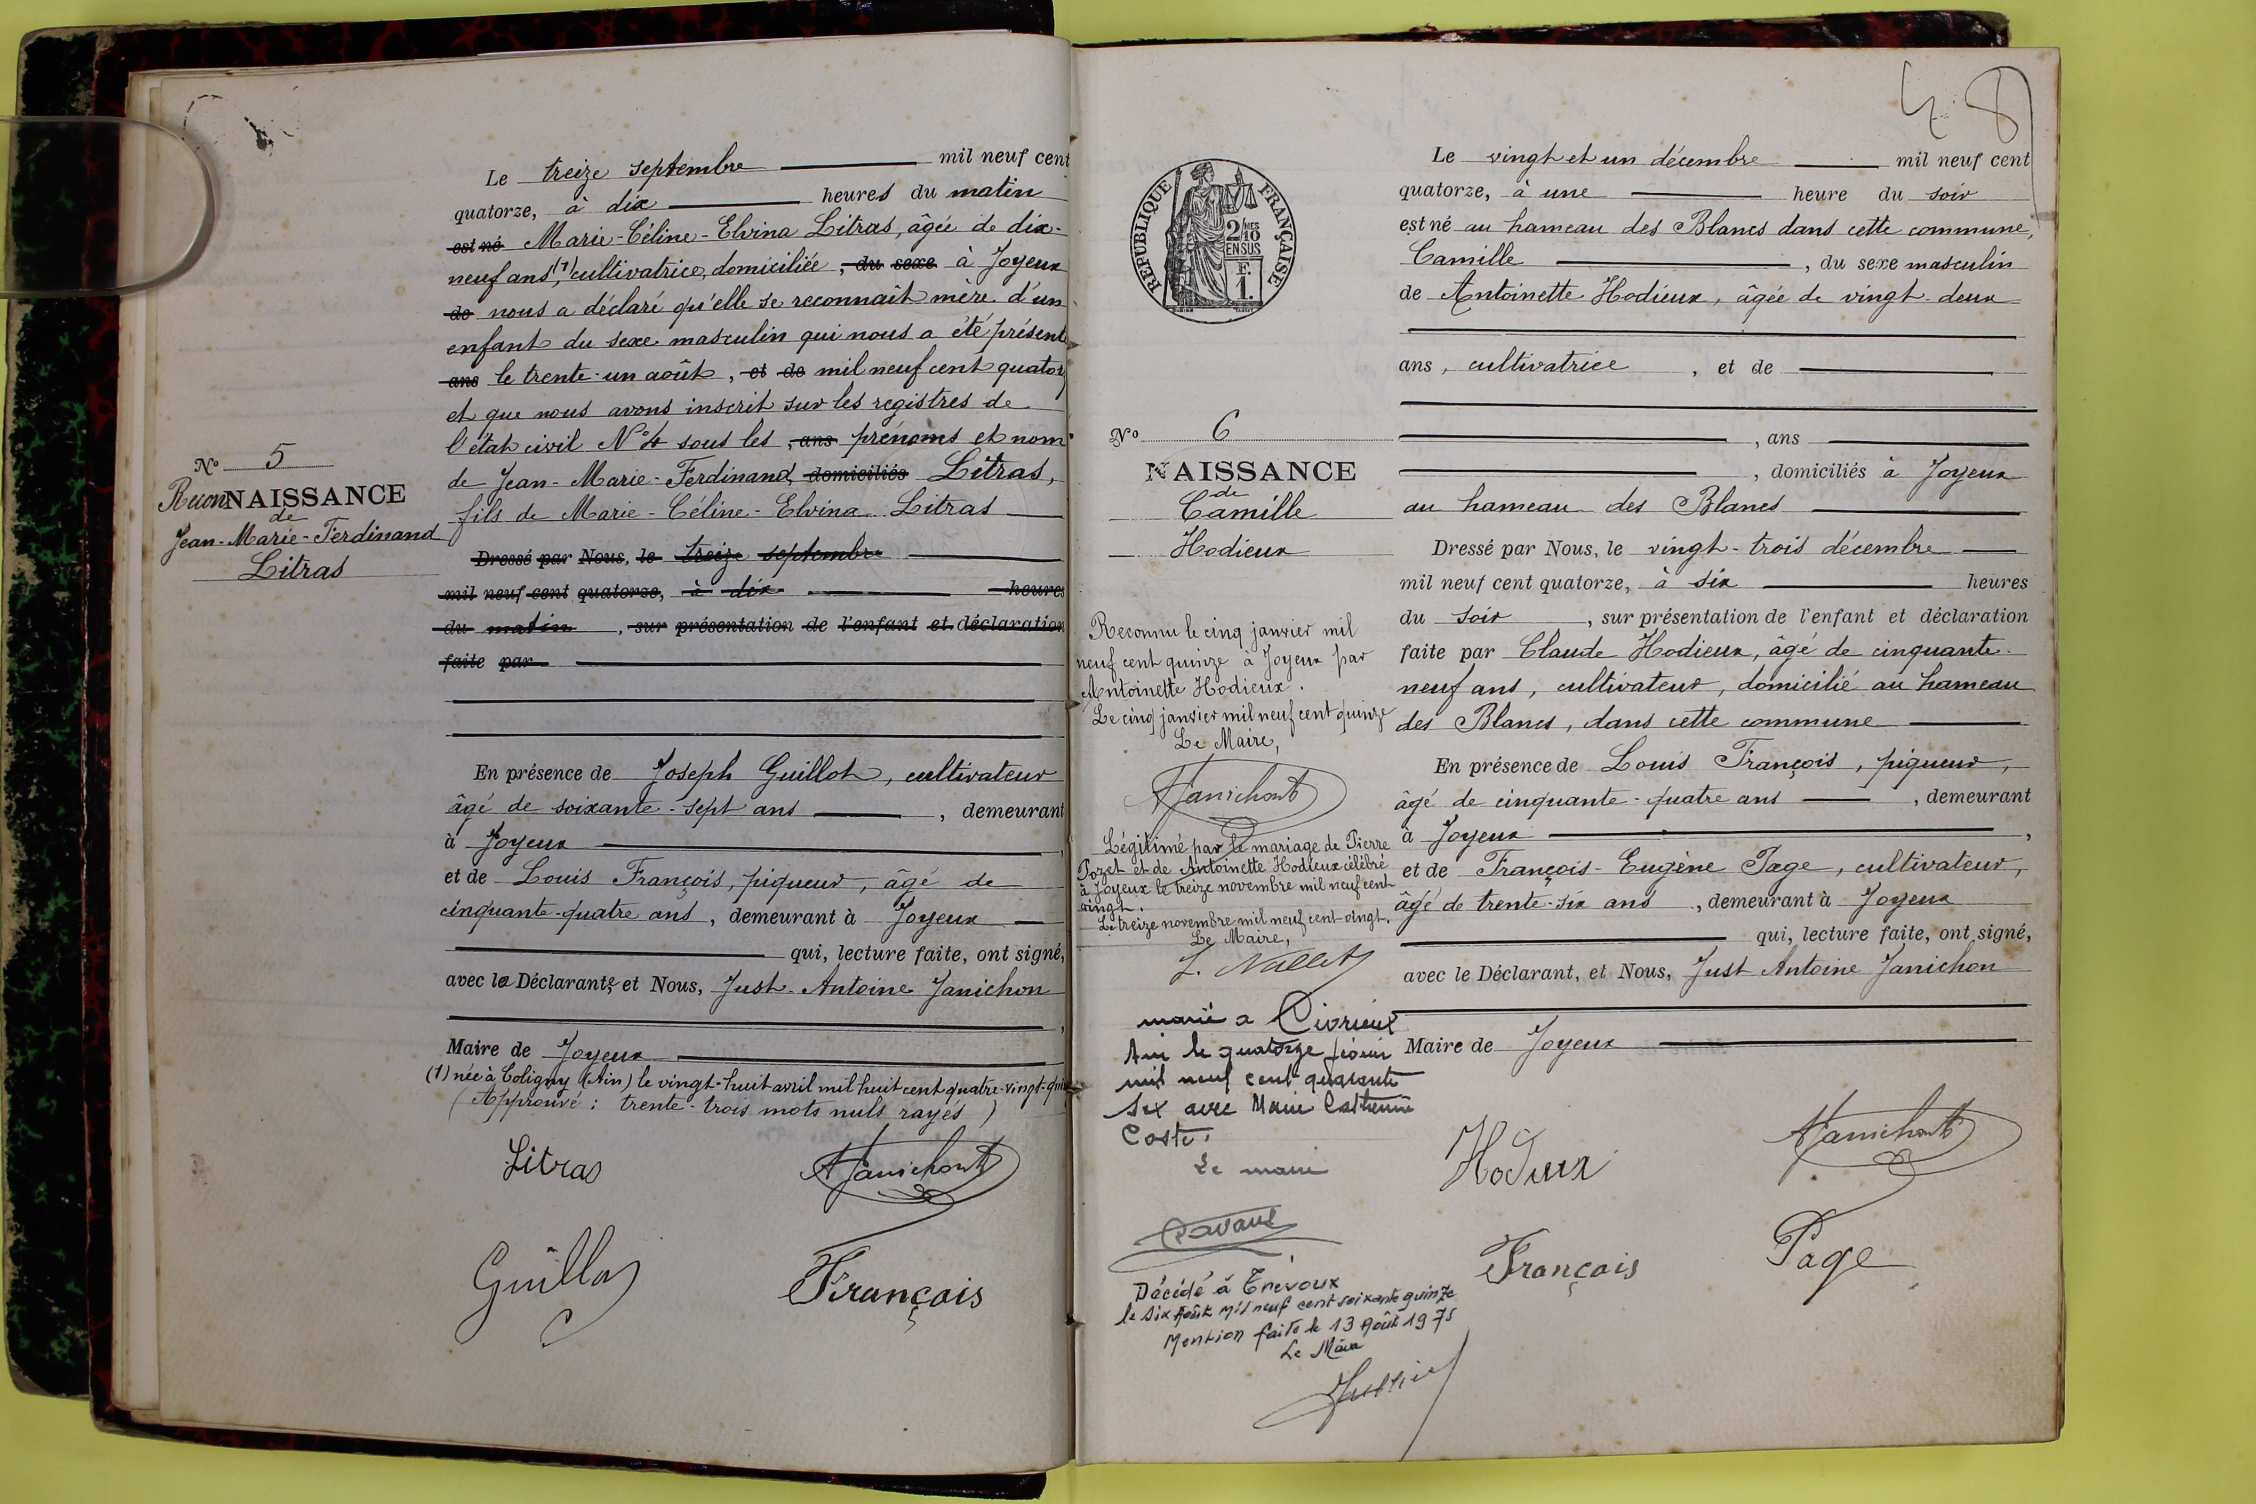 Le treize septembre mil neuf cent
quatorze, à dix heures du matin
est né Marie-Céline-Elvina Litras, âgée de dix-
neuf ans (1), cultivatrice, domiciliée, du sexe à Joyeux
de nous a déclaré qu'elle se reconnaît mère d'un
enfant du sexe masculin qui nous a été présenté
ans le trente-un août, et de mil neuf cent quatorz
et que nous avons inscrit sur les registres de
l'état civil N° 4 sous les, ans prénoms et nom
de Jean-Marie-Ferdinand, domiciliés Litras,
fils de Marie-Céline-Elvina Litras
Dressé par Nous, le treize septembre
mil neuf cent quatorze, à dix heures
du matin, sur présentation de l'enfant et déclaration
faite par
En présence de Joseph Guillot, cultivateur
âgé de soixante-sept ans, demeurant
à Joyeux,
et de Louis François, piqueur, âgé de
cinquante-quatre ans, demeurant à Joyeux
qui, lecture faite, ont signé,
avec la Déclarante, et Nous, Just-Antoine Janichon
Maire de Joyeux
(1) née à Coligny (Ain) le vingt-huit avril mil huit cent quatre-vingt-quin
(Approuvé : trente-trois mots nuls rayés)
Litras
AJanichon
Guillot
François
N° 5
ReconNAISSANCE
de
Jean-Marie-Ferdinand
Litras
48
RÉPUBLIQUE FRANÇAISE
2/10
EN SUS
F.
1.
N° 6
NAISSANCE
de
Camille
Hodieux
Reconnu le cinq janvier mil
neuf cent quinze à Joyeux par
Antoinette Hodieux.
Le cinq janvier mil neuf cent quinze
Le Maire,
AJanichon
Légitimé par le mariage de Pierre
Pozet et de Antoinette Hodieux célébré
à Joyeux le treize novembre mil neuf cent
vingt.
Le treize novembre mil neuf cent vingt.
Le Maire,
J. Nallet
marié a Civrieux
Ain le quatorze
mil neuf cent quarante
six avec Marie
Coste.
Le maire
Décédé à Trévoux
le six Août mil neuf cent soixante quinze
Mention faite le 13 Août 1975
Le Maire
Le vingt et un décembre mil neuf cent
quatorze, à une heure du soir
est né au hameau des Blancs dans cette commune,
Camille, du sexe masculin
de Antoinette Hodieux, âgée de vingt-deux
ans, cultivatrice, et de
, ans
, domiciliés à Joyeux
au hameau des Blancs
Dressé par Nous, le vingt-trois décembre
mil neuf cent quatorze, à six heures
du soir, sur présentation de l'enfant et déclaration
faite par Claude Hodieux, âgé de cinquante-
neuf ans, cultivateur, domicilié au hameau
des Blancs, dans cette commune
En présence de Louis François, piqueur,
âgé de cinquante-quatre ans, demeurant
à Joyeux,
et de François-Eugène Page, cultivateur,
âgé de trente-six ans, demeurant à Joyeux
qui, lecture faite, ont signé,
avec le Déclarant, et Nous, Just Antoine Janichon
Maire de Joyeux
Hodieux
AJanichon
François
Page